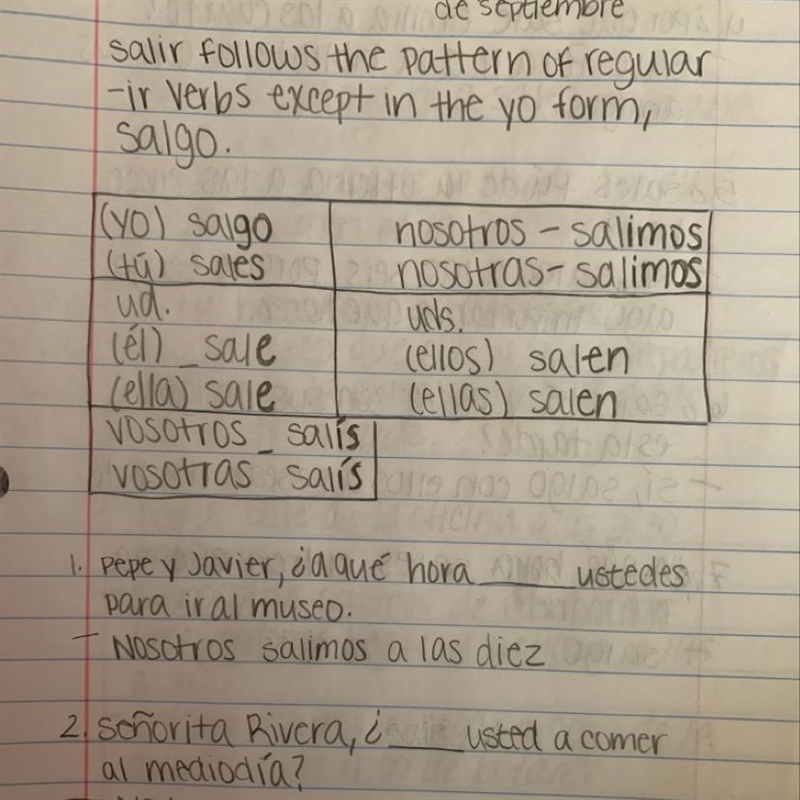 de septiembre
salir follows the pattern of regular
-ir verbs except in the yo form,
salgo.
(yo) salgo nosotros - salimos
(tú) sales nosotras - salimos
ud. uds.
(él) _ sale (ellos) salen
(ella) sale (ellas) salen
vosotros _ salís
vosotras salís
1. Pepe y Javier, ¿a qué hora _____ ustedes
para ir al museo.
- Nosotros salimos a las diez
2. Señorita Rivera, ¿ ____ usted a comer
al mediodía?